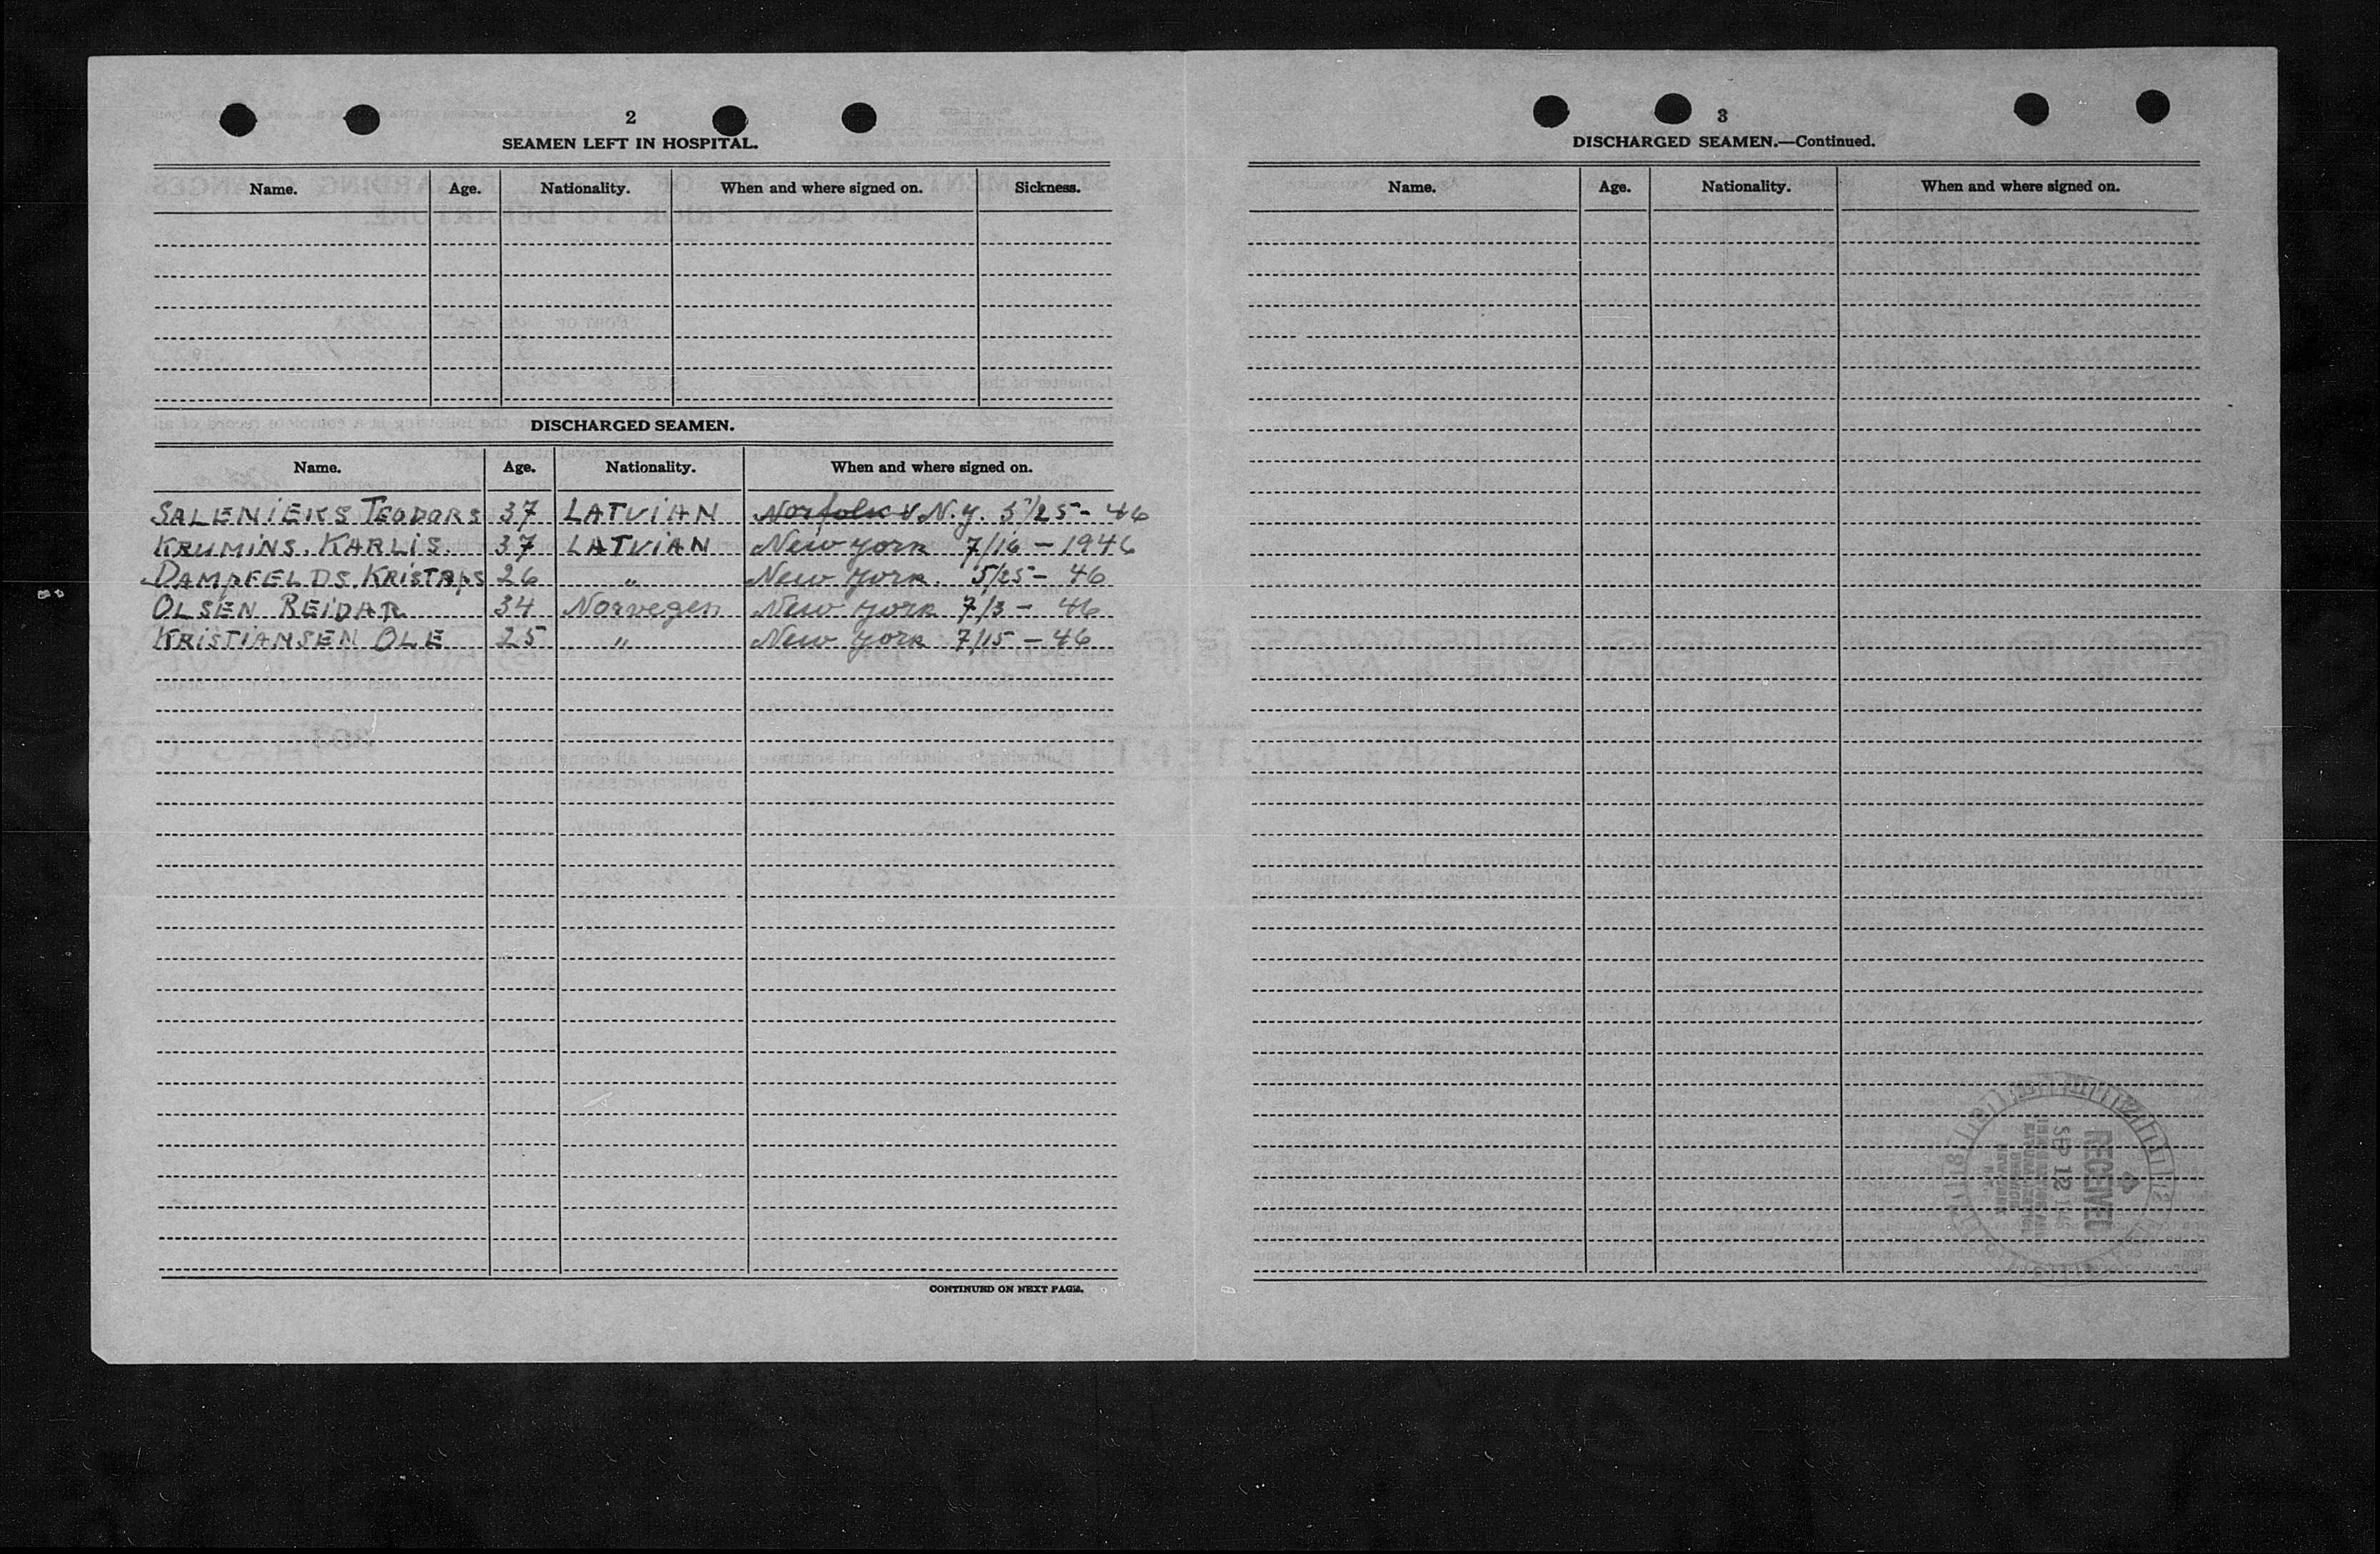 2
SEAMEN LEFT IN HOSPITAL.
Name. Age. Nationality. When and where signed on. Sickness.
DISCHARGED SEAMEN.
Name. Age. Nationality. When and where signed on.
SALENIEKS TEODORS 37 LATVIAN Norfolk V N.Y. 5/25- 46
KRUMINS. KARLIS. 37 LATVIAN New York 7/16 - 1946
DAMPFELDS. KRISTAPS 26 " New York. 5/25- 46
OLSEN REIDAR 34 Norvegen New York 7/3 - 46
KRISTIANSEN OLE 25 " New York 7/15 - 46
CONTINUED ON NEXT PAGE.
3
DISCHARGED SEAMEN.—Continued.
Name. Age. Nationality. When and where signed on.
RECEIVED
SEP 12